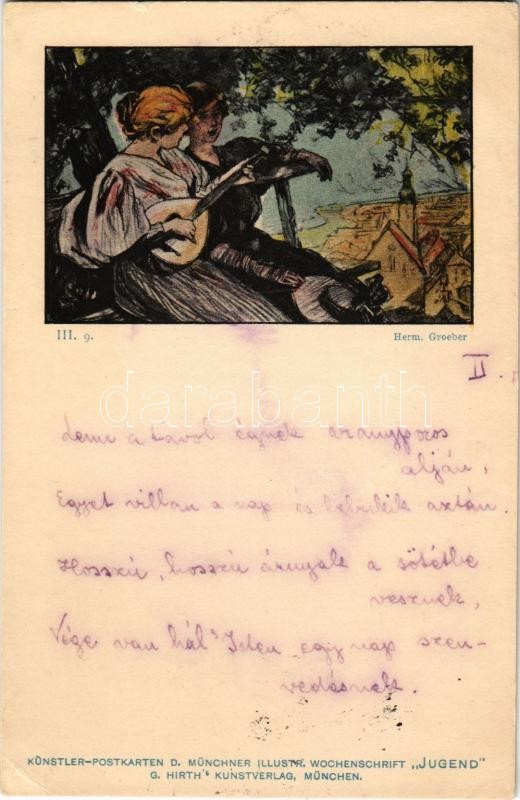 III. 9.
Herm. Groeber
II.
darabanth
Lenn a távol égnek aranyporos
alján,
Egyet villan a nap és lebukik aztán.
Hosszú, hosszú árnyak a sötétbe
vesznek,
Vége van hál' Isten egy nap szen-
vedésnek.
KÜNSTLER-POSTKARTEN D. MÜNCHNER ILLUSTR. WOCHENSCHRIFT „JUGEND"
G. HIRTH'S KUNSTVERLAG, MÜNCHEN.